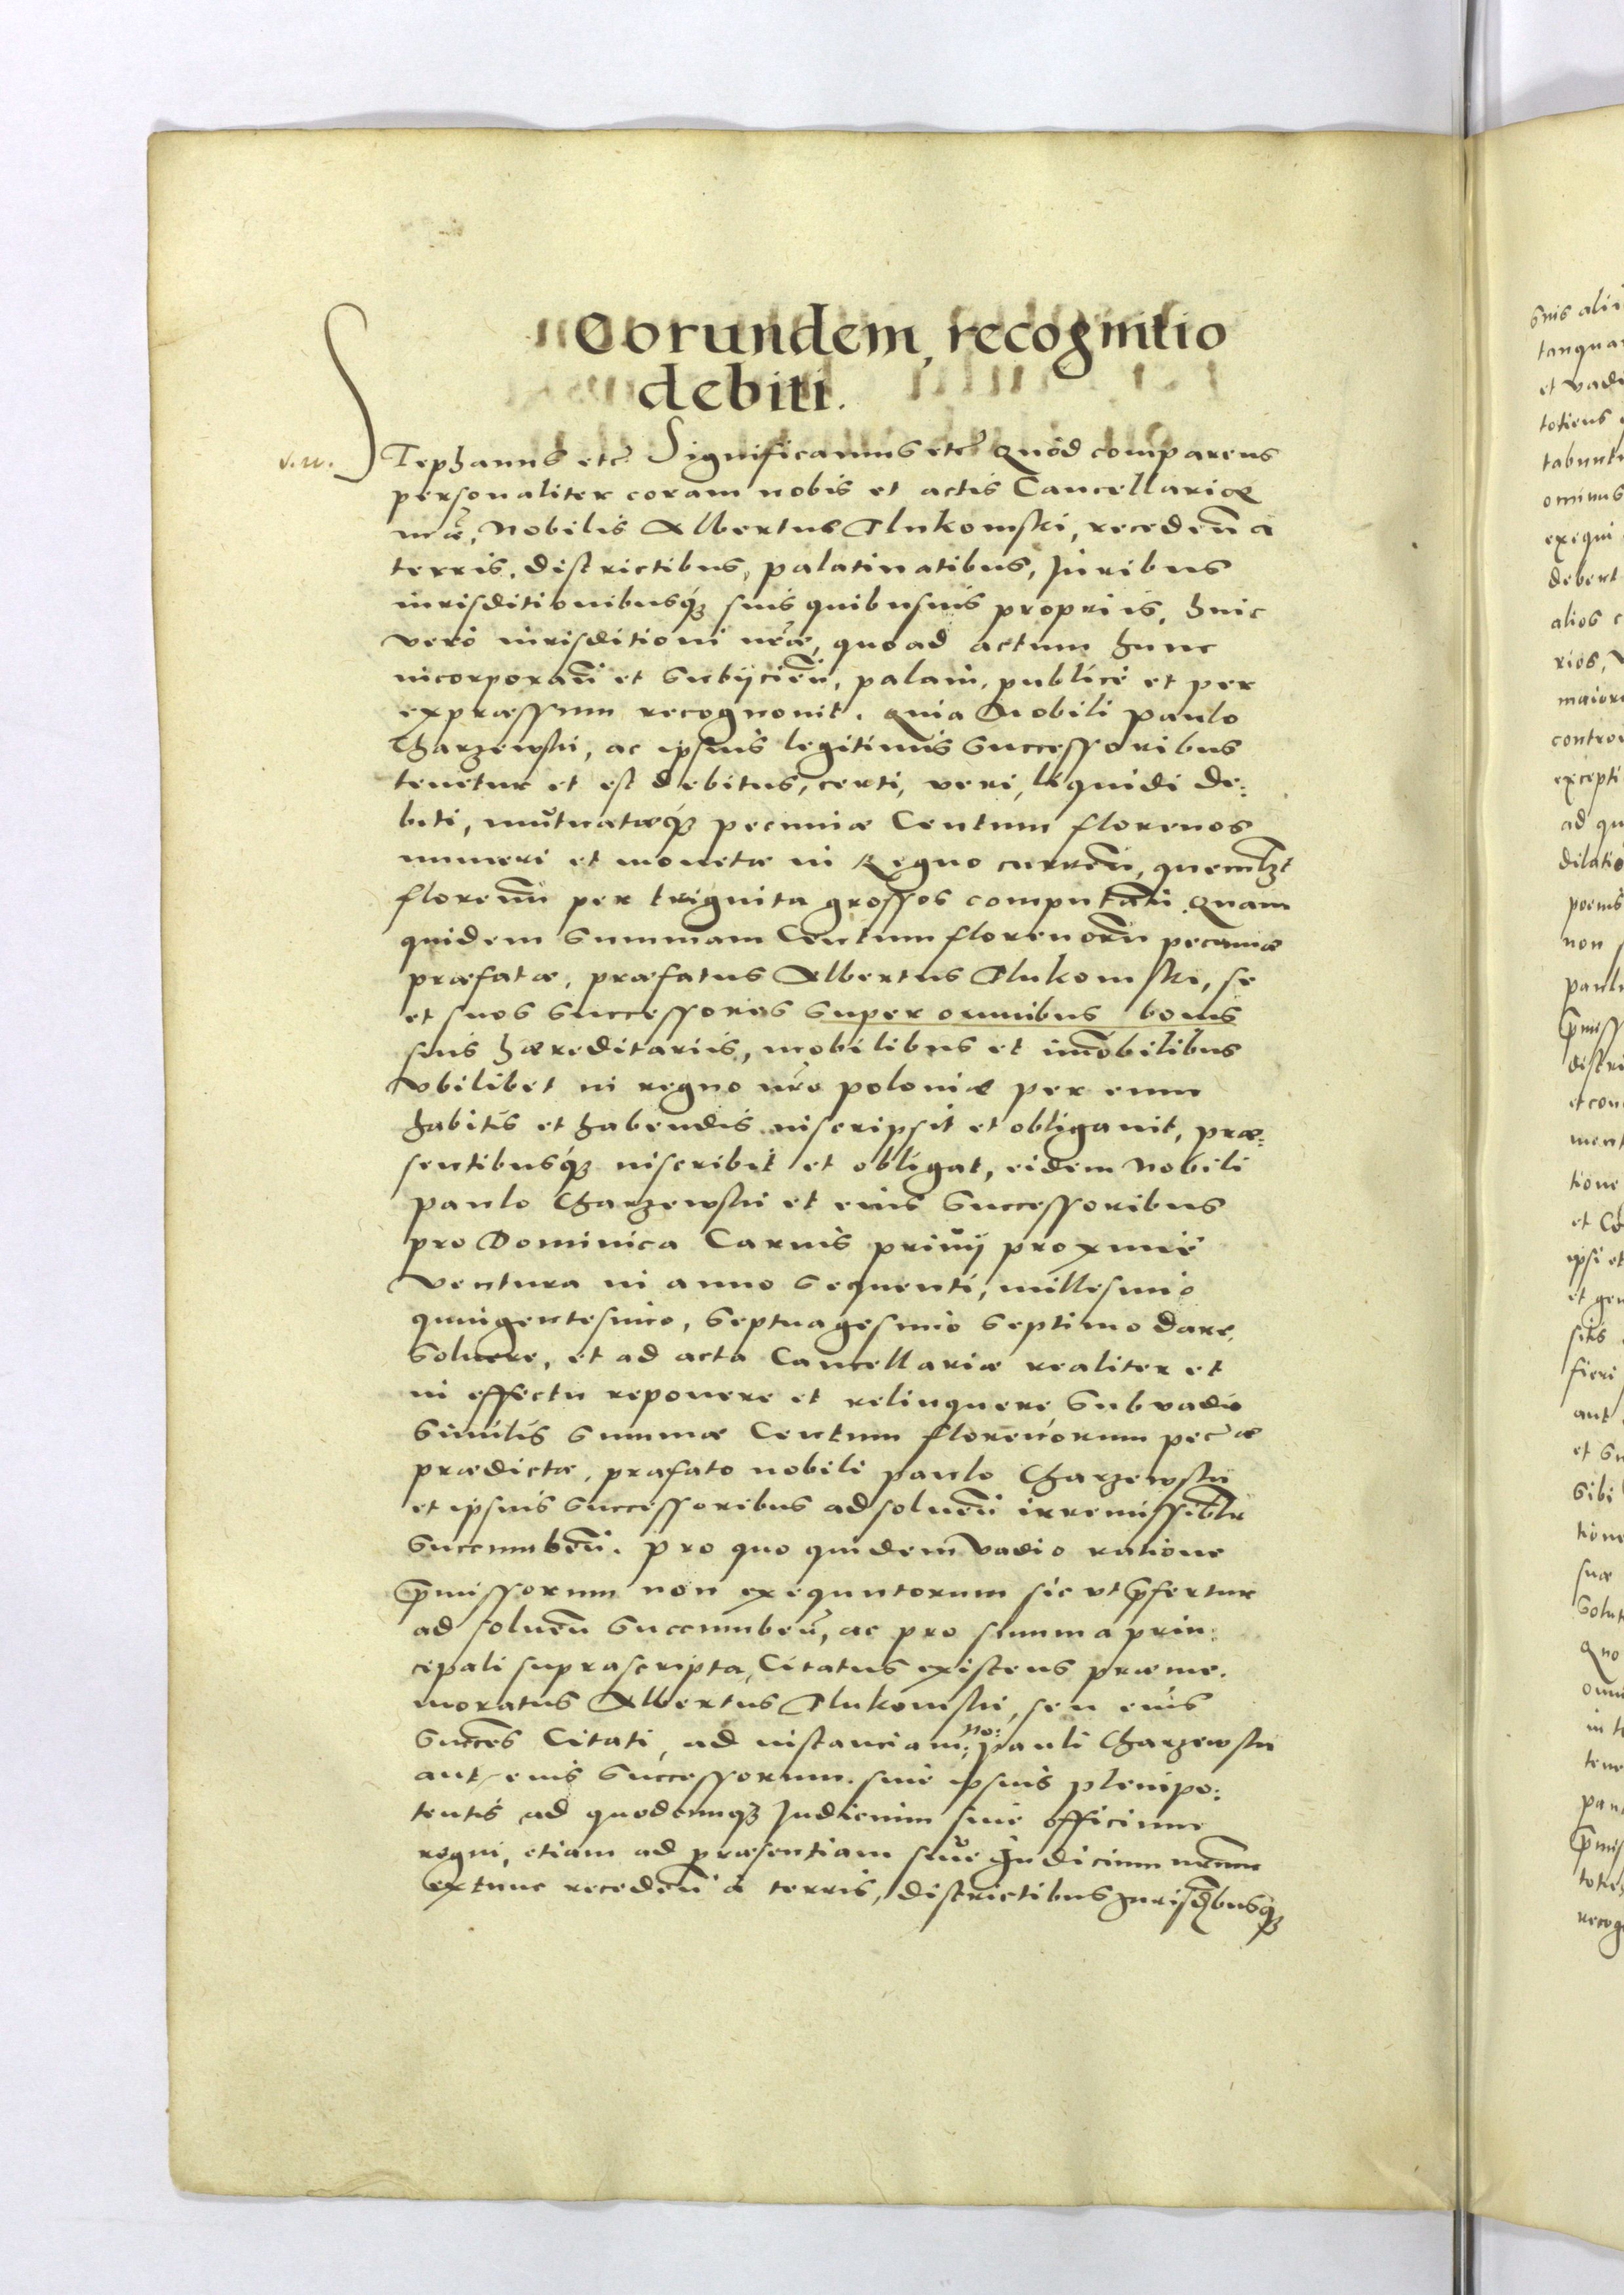 Eorundem recognitio
debiti.
v. w.
STephanus etc̃ Significamus etc̃ Quod comparens
personaliter coram nobis et actis Cancellariæ
nr̃æ, Nobilis Albertus Tlukomski, recedeñ a
terris, districtibus, palatinatibus, Juribus
iurisditionibusq́ꝫ suis quibusuis proprijs, huic
vero iurisditioni nr̃æ, quoad actum hunc
incorporañ et subijcieñ, palam, publicè et per
expræssum recognouit. Quia Nobili Paulo
Gharzewski, ac ipsius legitimis successoribus
tenetur et est debitus, certi, veri, liquidi de:
biti, mutuatæq́ꝫ pecuniæ Centum florenos
numeri et monetæ in Regno curreñ, quemlꝫt
florenũ per triginta grossos computañ. Quam
quidem summam Centum florenorũ pecuniæ
præfatæ, præfatus Albertus Tlukomski, se
et suos successores super omnibus bonis
suis hæreditarijs, mobilibus et im̃obilibus
vbilibet in regno nr̃o poloniæ per eum
habitis et habendis inscripsit et obligauit, præ:
sentibusq́ꝫ inscribit et obligat, eidem Nobili
Paulo Gharzewski et eius successoribus
pro Dominica Carnis priuij proximè
ventura in anno sequenti, millesimo
quingentesimo, septuagesimo septimo dare,
soluere, et ad acta Cancellariæ realiter et
in effectu reponere et relinquere, sub vadio
similis summæ Centum florenorum pec̃æ
prædictæ, præfato nobili Paulo Gharzewski
et ipsius successoribus ad solueñ irremissibl̃r
succumbeñ. Pro quo quidem vadio ratione
p̃missorum non exequutorum sic vt p̃fertur
ad solueñ succumbeñ, ac pro summa prin:
cipali suprascripta, Citatus existens præme:
moratus Albertus Tlukomski, seu eius
succẽs Citati, ad instanciam no: Pauli Gharzewski
aut eius successorum. siue ipsius plenipo:
tentis ad quodcumqꝫ Judicium siue officium
regni, etiam ad præsentiam siue Judicium nr̃um
extunc recedeñ à terris, districtibus Jurisd̃ibusq́ꝫ